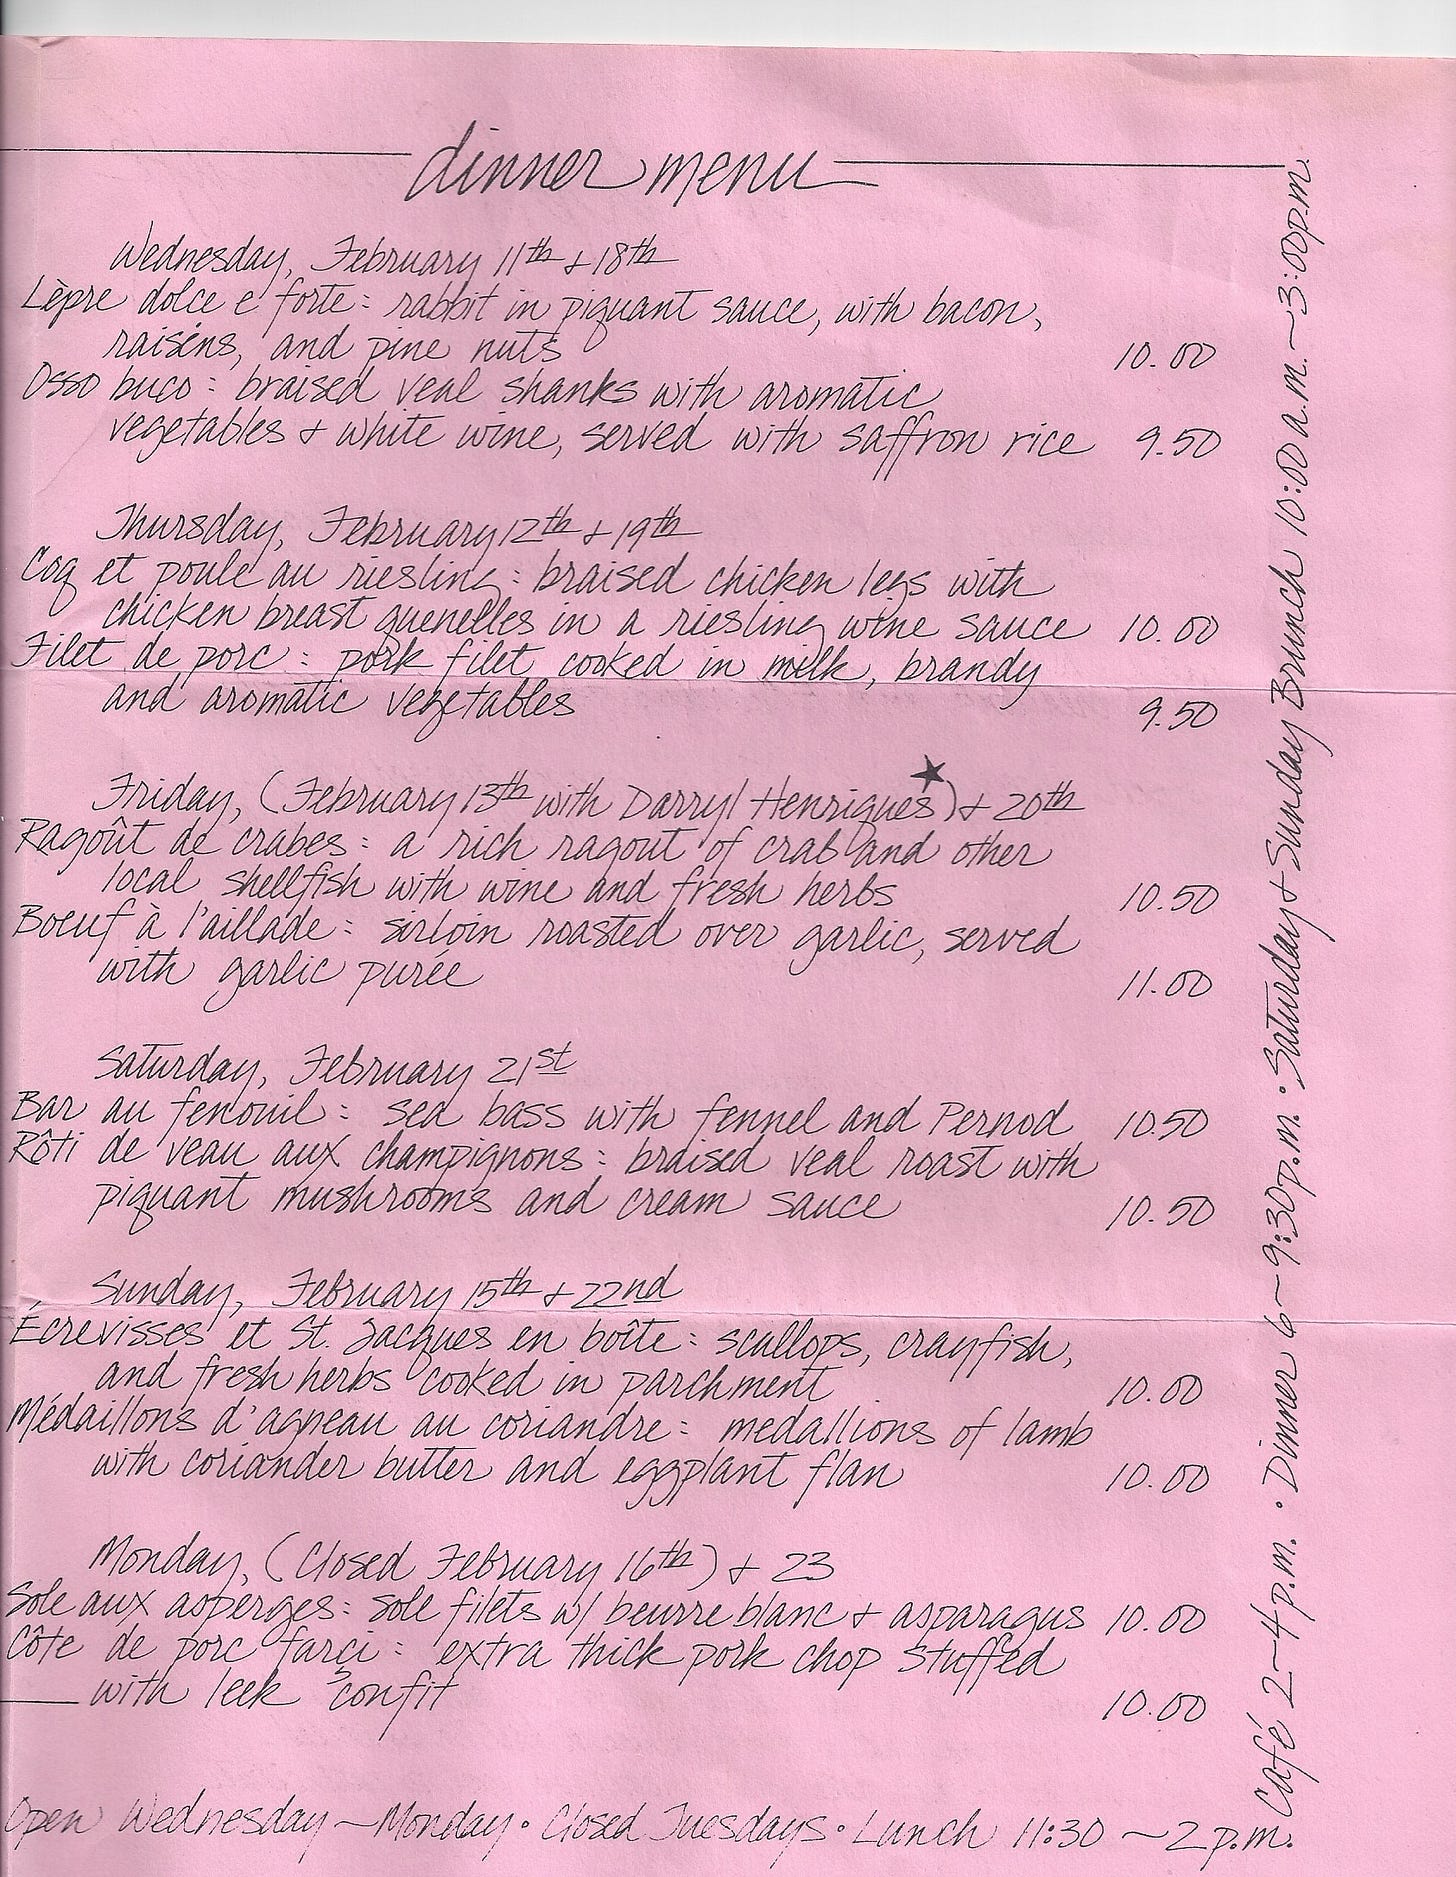 dinner menu
Wednesday, February 11th + 18th
Lèpre dolce e forte: rabbit in piquant sauce, with bacon,
raisins, and pine nuts 10.00
Osso buco: braised veal shanks with aromatic
vegetables + white wine, served with saffron rice 9.50
Thursday, February 12th + 19th
Coq et poule au riesling: braised chicken legs with
chicken breast quenelles in a riesling wine sauce 10.00
Filet de porc: pork filet cooked in milk, brandy
and aromatic vegetables 9.50
Friday, (February 13th with Darryl Henriques★) + 20th
Ragoût de crabes: a rich ragout of crab and other
local shellfish with wine and fresh herbs 10.50
Boeuf à l'aillade: sirloin roasted over garlic, served
with garlic purée 11.00
Saturday, February 21st
Bar au fenouil: sea bass with fennel and Pernod 10.50
Rôti de veau aux champignons: braised veal roast with
piquant mushrooms and cream sauce 10.50
Sunday, February 15th + 22nd
Écrevisses et St. Jacques en boîte: scallops, crayfish,
and fresh herbs cooked in parchment 10.00
Médaillons d'agneau au coriandre: medallions of lamb
with coriander butter and eggplant flan 10.00
Monday, (Closed February 16th) + 23
Sole aux asperges: sole filets w/ beurre blanc + asparagus 10.00
Côte de porc farçi: extra thick pork chop stuffed
with leek confit 10.00
Open Wednesday ~ Monday • Closed Tuesdays • Lunch 11:30 ~ 2 p.m.
Café 2~4 p.m. • Dinner 6~9:30 p.m. • Saturday + Sunday Brunch 10:00 a.m. ~ 3:00 p.m.